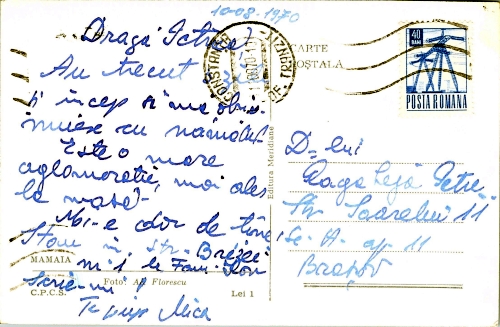 10-08-1970
Dragă Petrică,
Au trecut 3 zile
și încep să mă obiș
nuiesc cu nămolul.
Este o mare
aglomerație, mai ales
la masă.
Mi-e dor de tine.
Stau în str. Brizei
nr. 1 la Fam. Ion
Scrie-mi!
Te pup Mica
MAMAIA
Foto: Al. Florescu
C.P.C.S.
Lei 1
Editura Meridiane
CONSTANȚA
CARTE
POȘTALĂ
40
BANI
POSTA ROMANA
D-lui
Petre
Str. Soarelui 11
Sc. A. ap. 11
Brașov